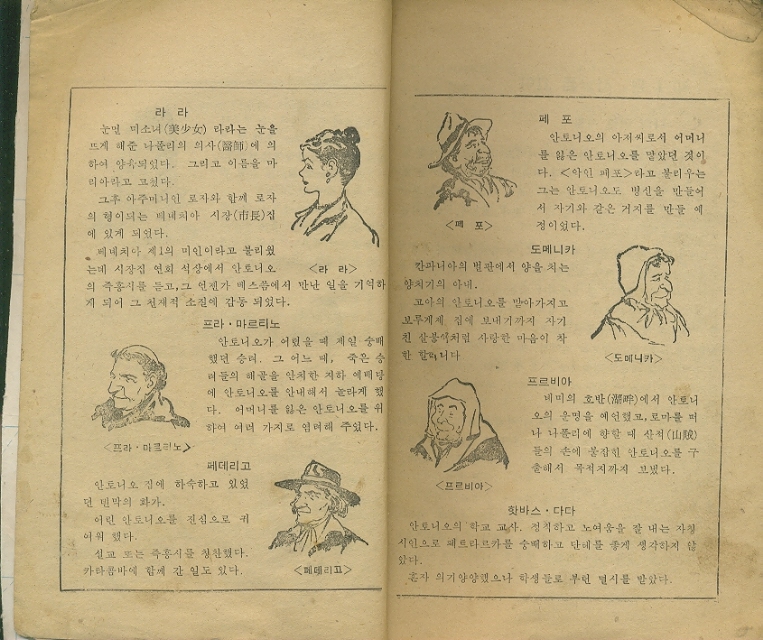 라 라
눈멀 미소녀(美少女) 라라는 눈을
뜨게 해준 나폴리의 의사(醫師)에 의
하여 양육되었다. 그리고 이름을 마
리아라고 고쳤다.
그후 아주머니인 로자와 함께 로자
의 형이되는 베네치아 시장(市長)집
에 있게 되었다.
베네치아 제1의 미인이라고 불리웠
는데 시장집 연회 석상에서 안토니오
의 즉흥시를 듣고, 그 언젠가 페스툼에서 만난 일을 기억하
게 되어 그 천재적 소질에 감동 되었다.
<라 라>
프라・마르티노
안토니오가 어렸을 때 제일 숭배
했던 승려. 그 어느 때, 죽은 승
려들의 해골을 안치한 지하 예배당
에 안토니오를 안내해서 놀라게 했
다. 어머니를 잃은 안토니오를 위
하여 여러 가지로 염려해 주었다.
<프라・마르티노>
페데리고
안토니오 집에 하숙하고 있었
던 덴막의 화가.
어린 안토니오를 진심으로 귀
여워 했다.
설교 또는 즉흥시를 칭찬했다.
카타콤바에 함께 간 일도 있다.
<페데리고>
페 포
안토니오의 아저씨로서 어머니
를 잃은 안토니오를 맡았던 것이
다. <악인 페포>라고 불리우는
그는 안토니오도 병신을 만들어
서 자기와 같은 거지를 만들 예
정이었다.
<페 포>
도메니카
캄파니아의 벌판에서 양을 치는
양치기의 아내.
고아의 안토니오를 맡아가지고
보루게제 집에 보내기까지 자기
친 살붙이처럼 사랑한 마음이 착
한 할머니다
<도메니카>
프르비아
네미의 호반(湖畔)에서 안토니
오의 운명을 예언했고, 로마를 떠
나 나폴리에 향할 때 산적(山賊)
들의 손에 붙잡힌 안토니오를 구
출해서 목적지까지 보냈다.
<프르비아>
핫바스・다다
안토니오의 학교 교사. 정직하고 노여움을 잘 내는 자칭
시인으로 페트라르카를 숭배하고 단테를 좋게 생각하지 않
았다.
혼자 의기양양했으나 학생들로 부터 멸시를 받았다.